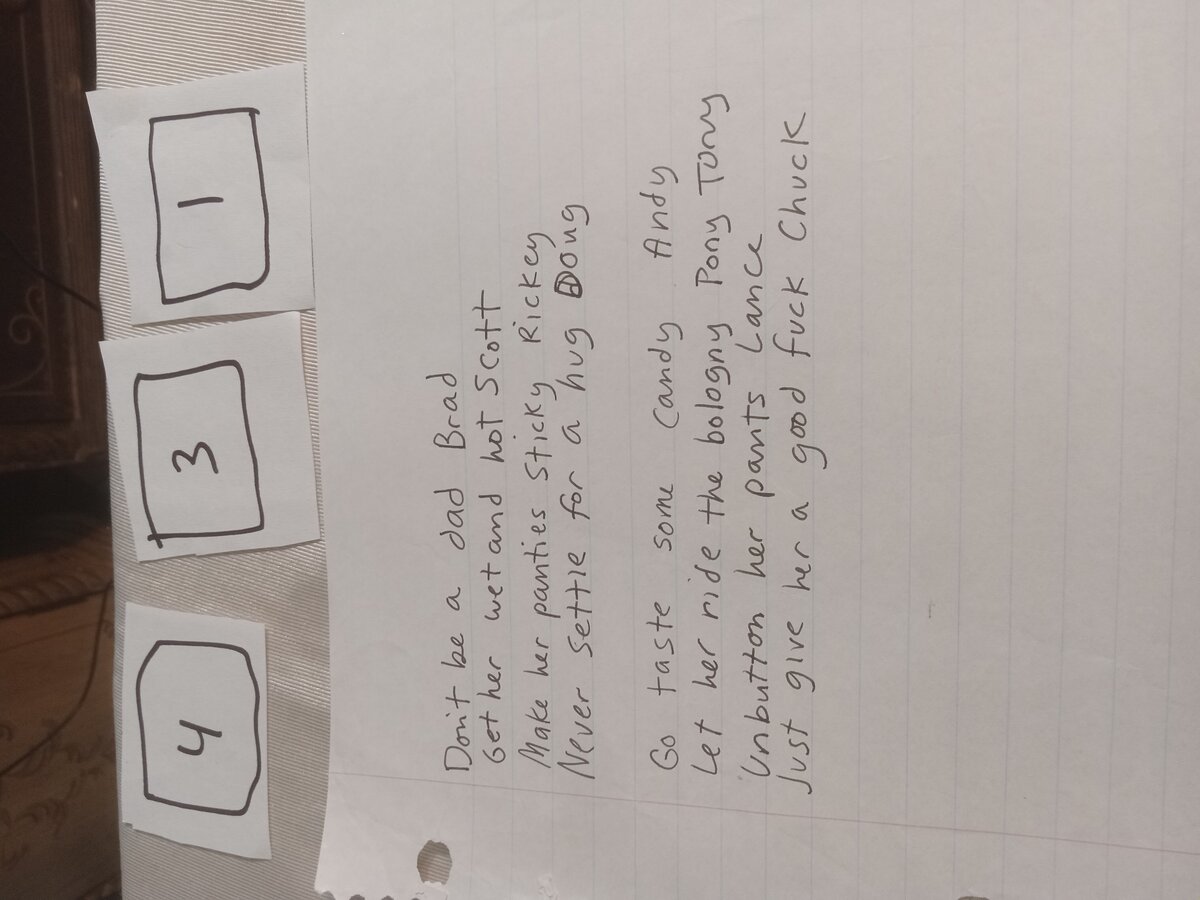 4
3
1
Don't be a dad Brad
Get her wet and hot Scott
Make her panties Sticky Rickey
Never Settle for a hug Doug
Go taste some Candy Andy
Let her ride the bologny Pony Tony
Unbutton her pants Lance
Just give her a good fuck Chuck